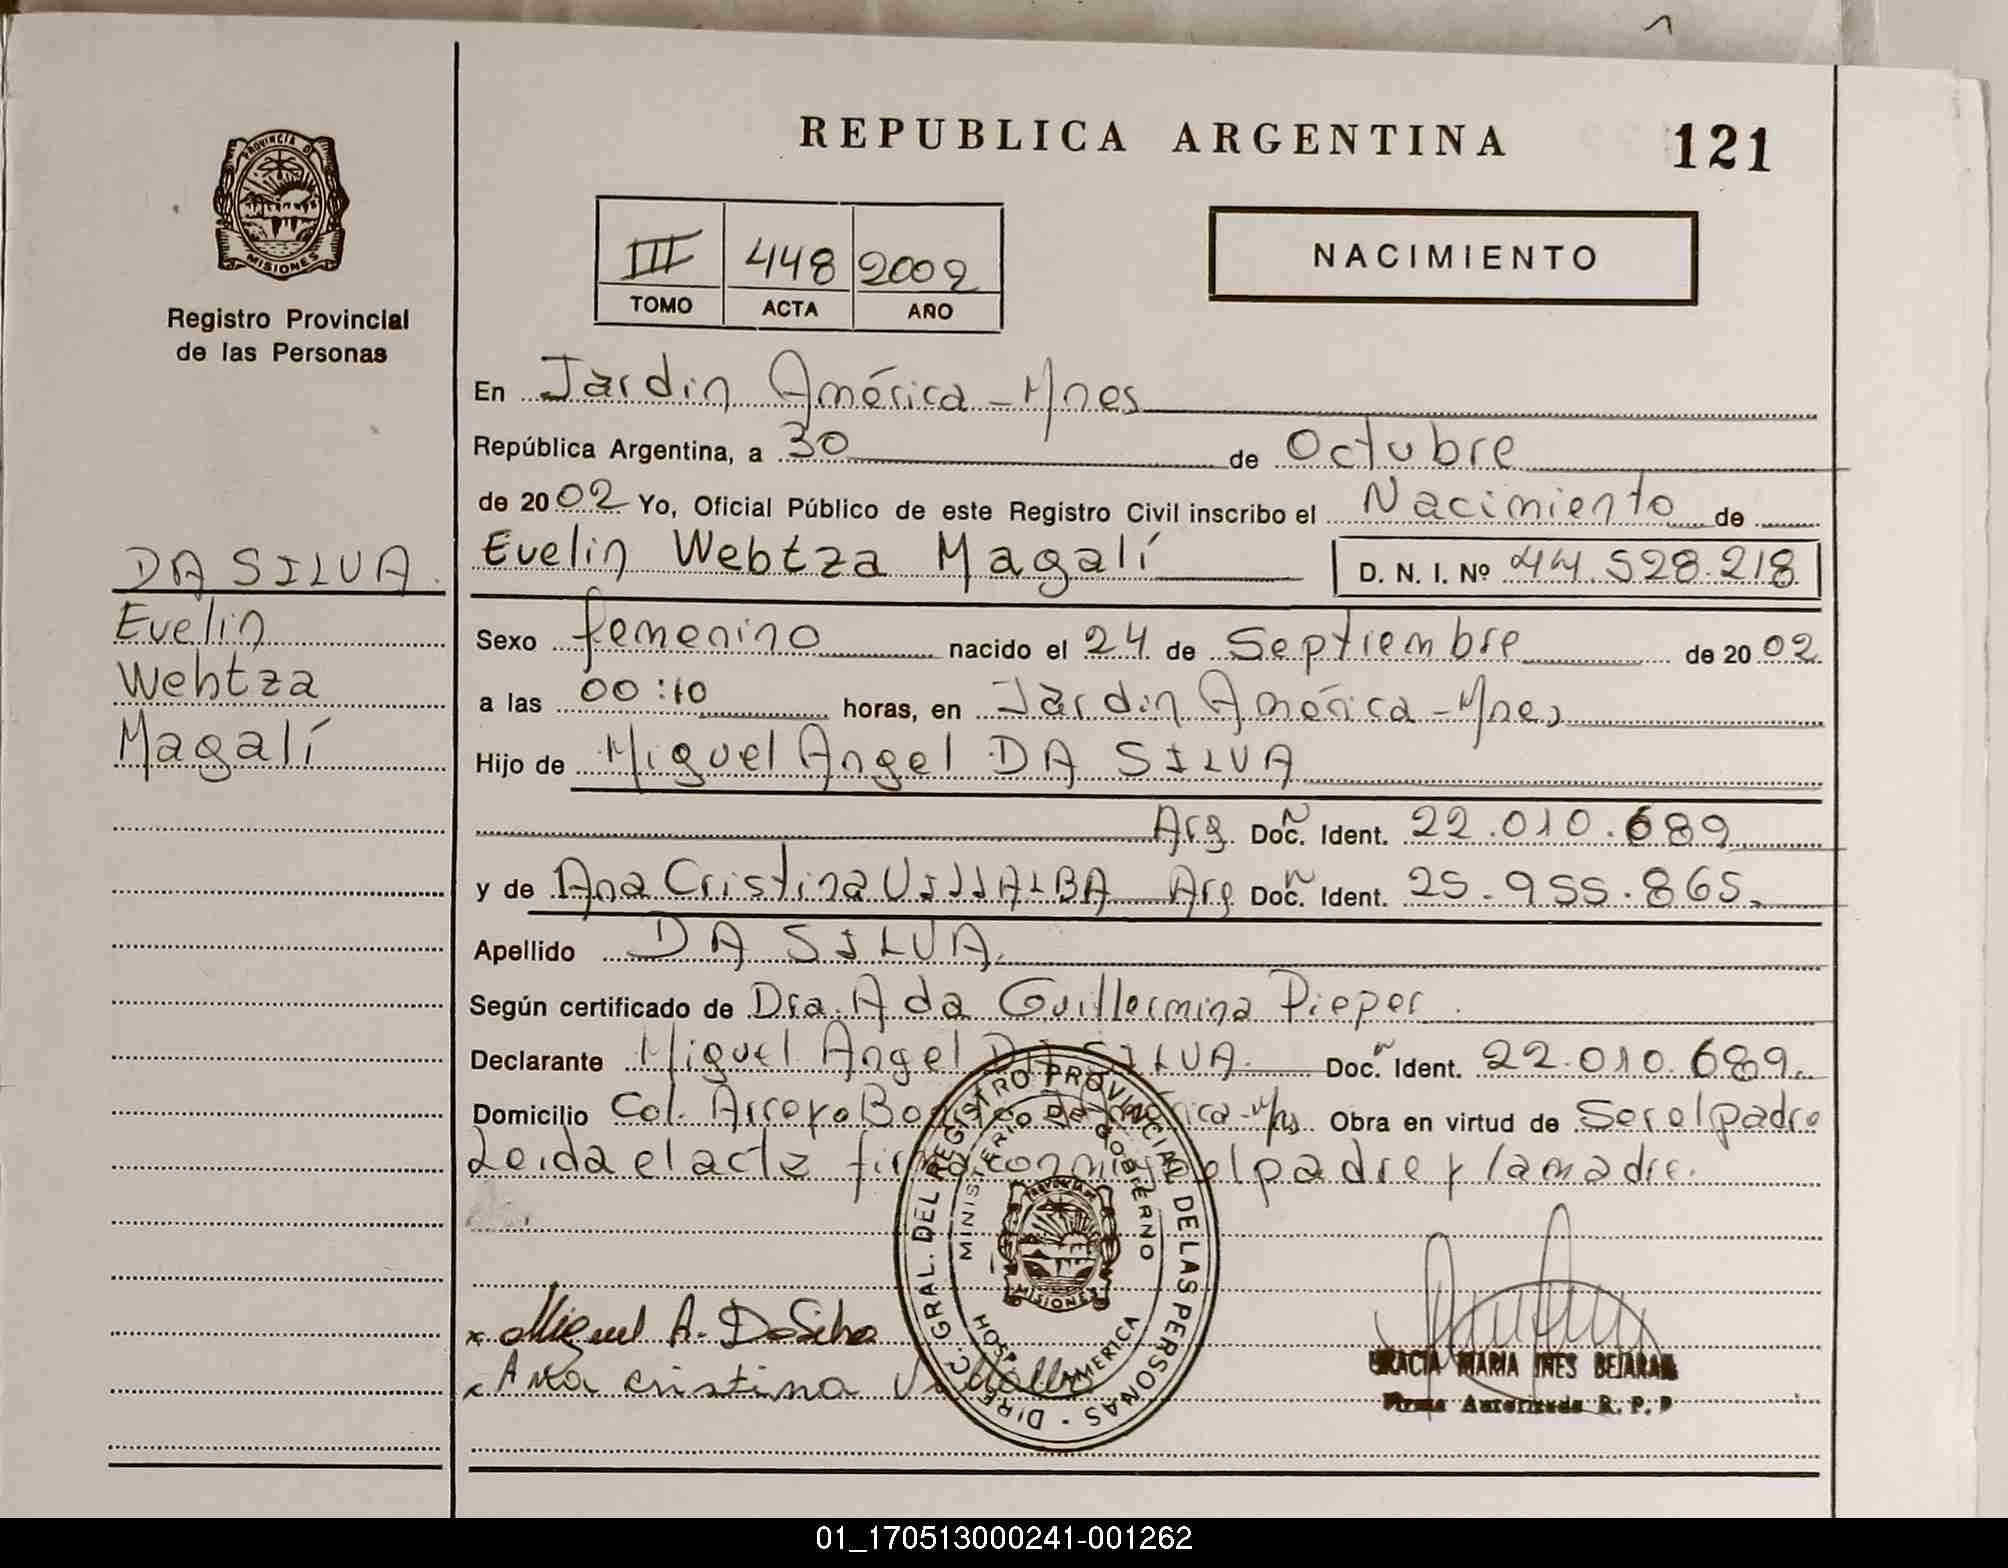 REPUBLICA ARGENTINA
121
PROVINCIA D
MISIONES
Registro Provincial
de las Personas
III 448 2002
TOMO ACTA AÑO
NACIMIENTO
En Jardin América - Mnes
República Argentina, a 30 de Octubre
de 2002 Yo, Oficial Público de este Registro Civil inscribo el Nacimiento de
Evelin Webtza Magalí D. N. I. Nº 44.528.218
DA SILVA.
Evelin
Webtza
Magalí
Sexo femenino nacido el 24 de Septiembre de 2002
a las 00:10 horas, en Jardin América - Mnes
Hijo de Miguel Angel DA SILVA
Arg. Doc. Ident. 22.010.689
y de Ana Cristina VILLALBA Arg Doc. Ident. 25.955.865.
Apellido DA SILVA.
Según certificado de Dra. Ada Guillermina Pieper.
Declarante Miguel Angel DA SILVA. Doc. Ident. 22.010.689
Domicilio Col. Arroyo Obra en virtud de Ser el padre
Leida el acta firma conmigo el padre y la madre.
DIREC. GRAL. DEL REGISTRO PROVINCIAL DE LAS PERSONAS
MINISTERIO DE GOBIERNO
PROVINCIA DE
MISIONES
HOSP. AMERICA
x Miguel A. Da Silva
x Ana cristina Villalba
GRACIA MARIA INES BEJARAN
Firma Autorizada R. P. P
01_170513000241-001262